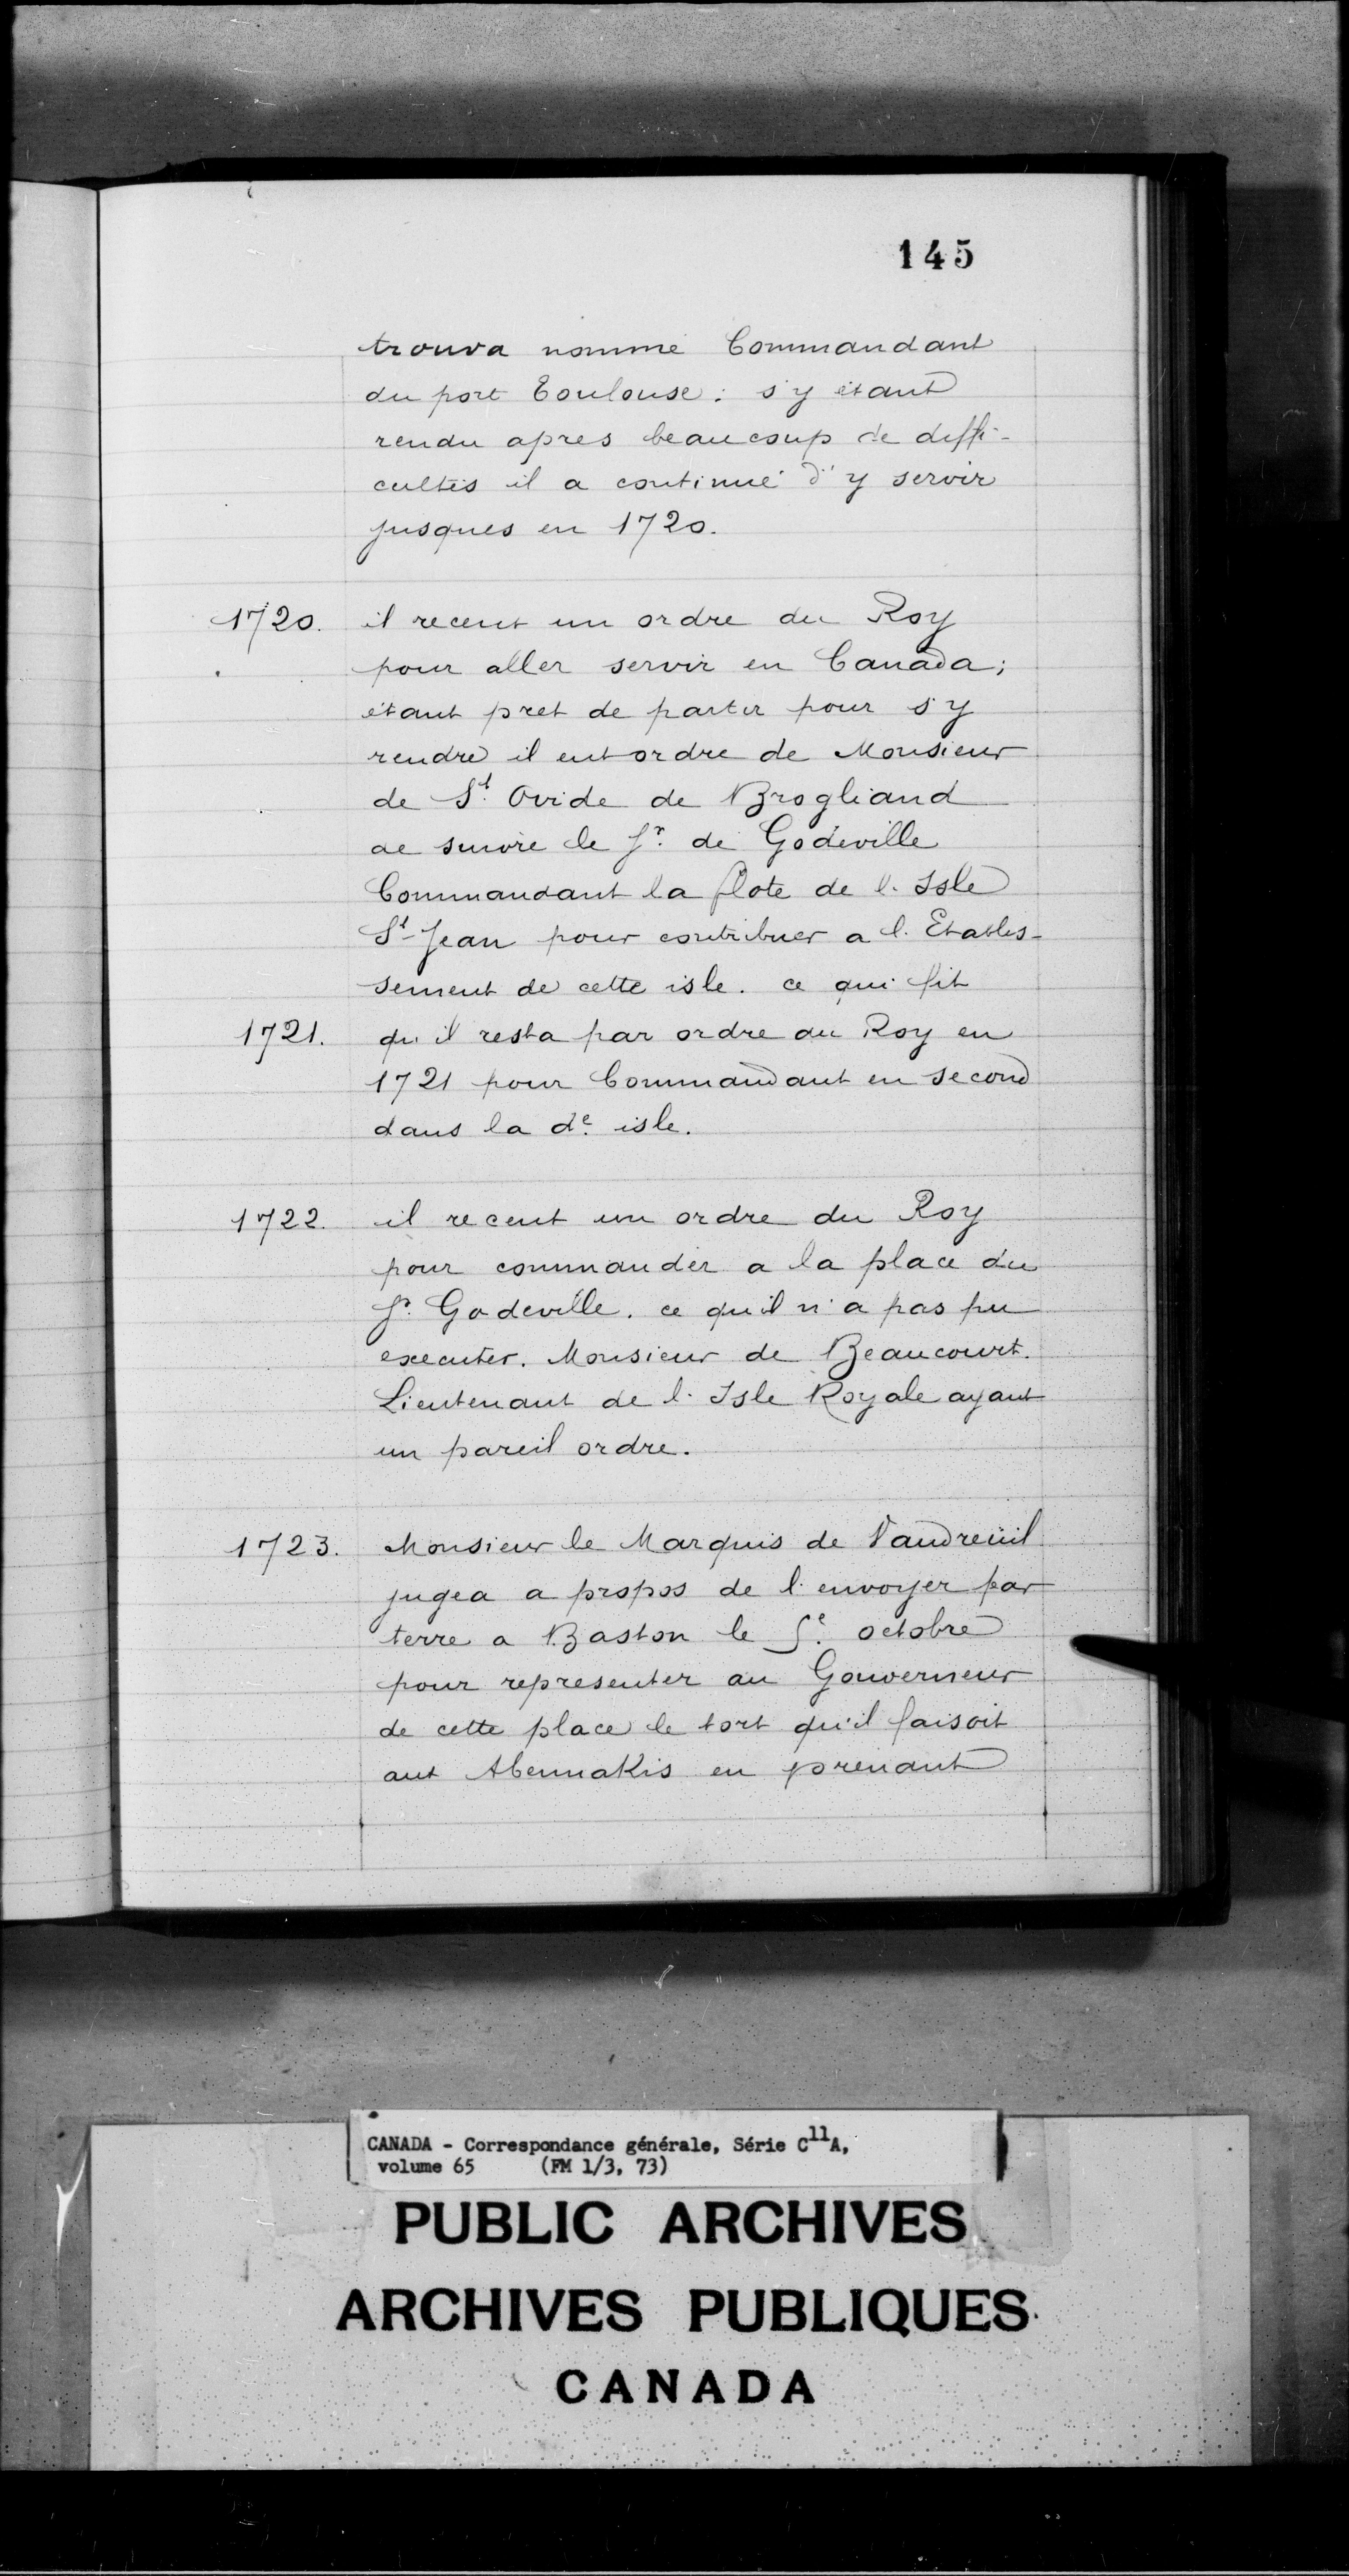 145
trouva nommé Commandant
du port Toulouse : s'y étant
rendu apres beaucoup de diffi-
cultés il a continué d'y servir
jusques en 1720.
1720. il receut un ordre du Roy
pour aller servir en Canada ;
étant pret de partir pour s'y
rendre il eut ordre de Monsieur
de St. Ovide de Brogliand
de suivre le Sr. de Godeville
Commandant la flote de l'Isle
St-Jean pour contribuer a l'Etablis-
sement de cette isle. ce qui fit
1721. qu'il resta par ordre du Roy en
1721 pour Commandant en second
dans la de. isle.
1722. il receut un ordre du Roy
pour commander a la place du
Sr. Godeville. ce qu'il n'a pas pu
executer. Monsieur de Beaucourt.
Lieutenant de l'Isle Royale ayant
un pareil ordre.
1723. Monsieur le Marquis de Vaudreuil
jugea a propos de l'envoyer par
terre a Baston le 5e. octobre
pour representer au Gouverneur
de cette place le tort qu'il faisoit
aux Abennakis en prenant
CANADA - Correspondance générale, Série C11A,
volume 65 (FM 1/3, 73)
PUBLIC ARCHIVES
ARCHIVES PUBLIQUES
CANADA